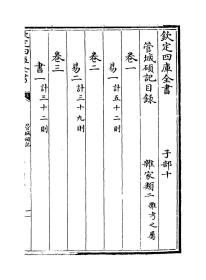 欽定四庫全書
子部十
管城碩記目錄
雜家類二雜考之屬
卷一
易一計五十二則
卷二
易二計三十九則
卷三
書一計三十二則
管城碩記